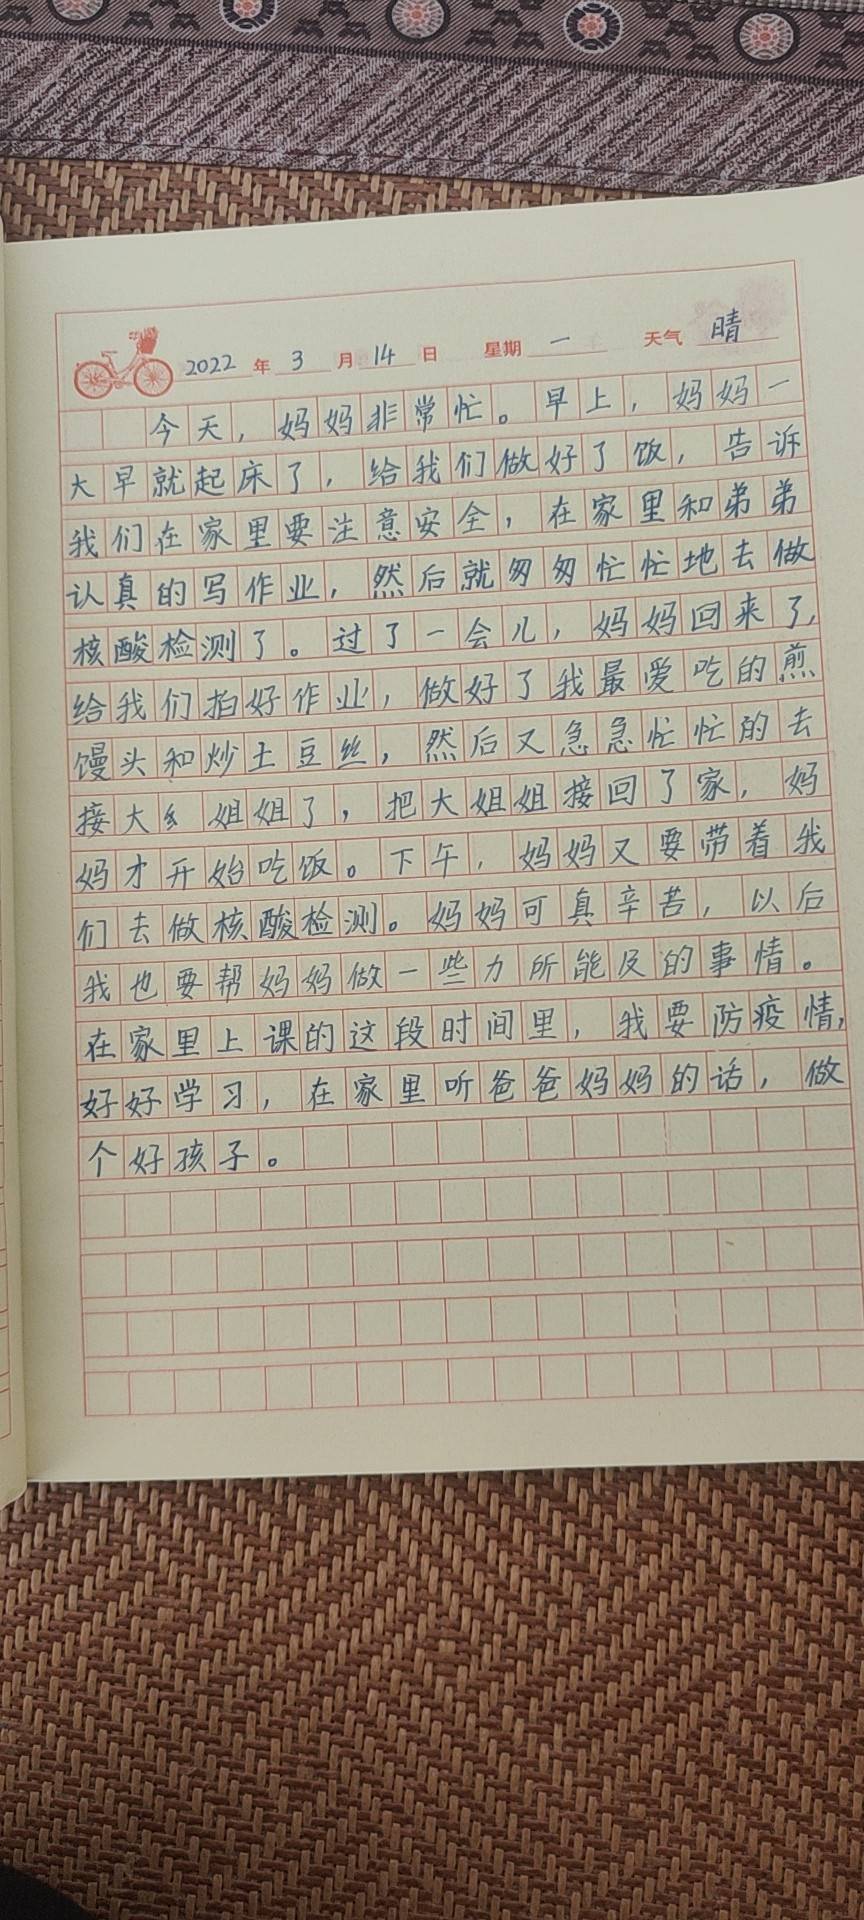 2022 年 3 月 14 日 星期 一 天气 晴
今天，妈妈非常忙。早上，妈妈一
大早就起床了，给我们做好了饭，告诉
我们在家里要注意安全，在家里和弟弟
认真的写作业，然后就匆匆忙忙地去做
核酸检测了。过了一会儿，妈妈回来了，
给我们拍好作业，做好了我最爱吃的煎
馒头和炒土豆丝，然后又急急忙忙的去
接大 姐姐了，把大姐姐接回了家，妈
妈才开始吃饭。下午，妈妈又要带着我
们去做核酸检测。妈妈可真辛苦，以后
我也要帮妈妈做一些力所能及的事情。
在家里上课的这段时间里，我要防疫情，
好好学习，在家里听爸爸妈妈的话，做
个好孩子。